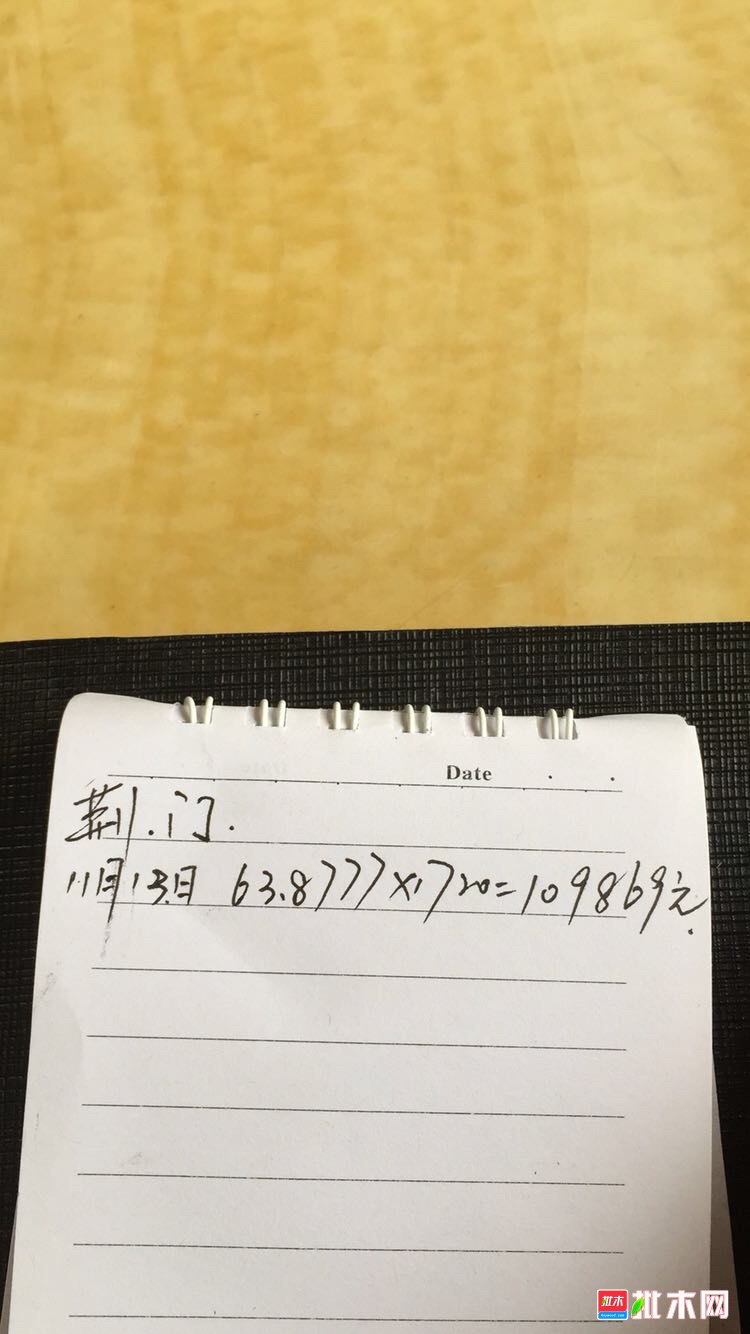 Date . .
荆门.
11月13日 63.8777×1720=109869元.
批木 批木网